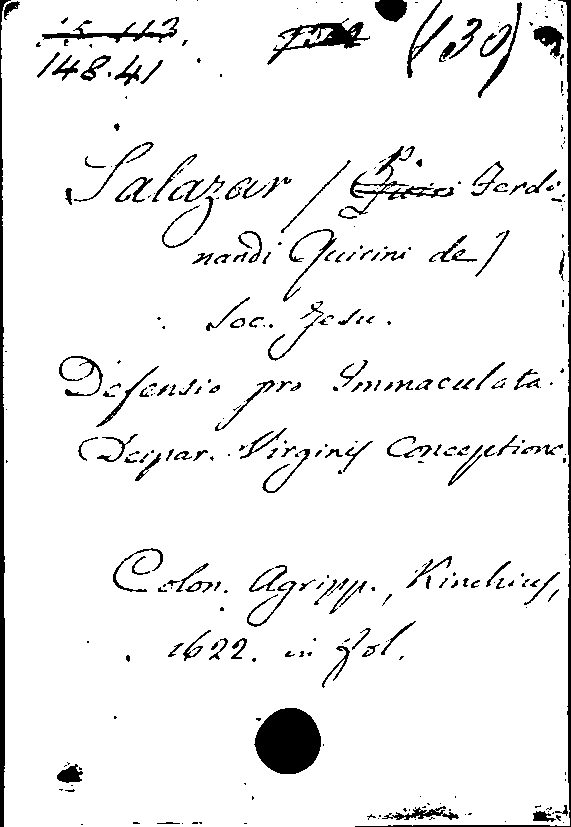 15.113. (130)
148.41
Salazar / P. Ferdi-
nandi Quirini de /
Soc. Jesu.
Defensio pro Immaculata
Deipar. Virginis Conceptione.
Colon. Agripp., Kinchius,
1622. in fol.